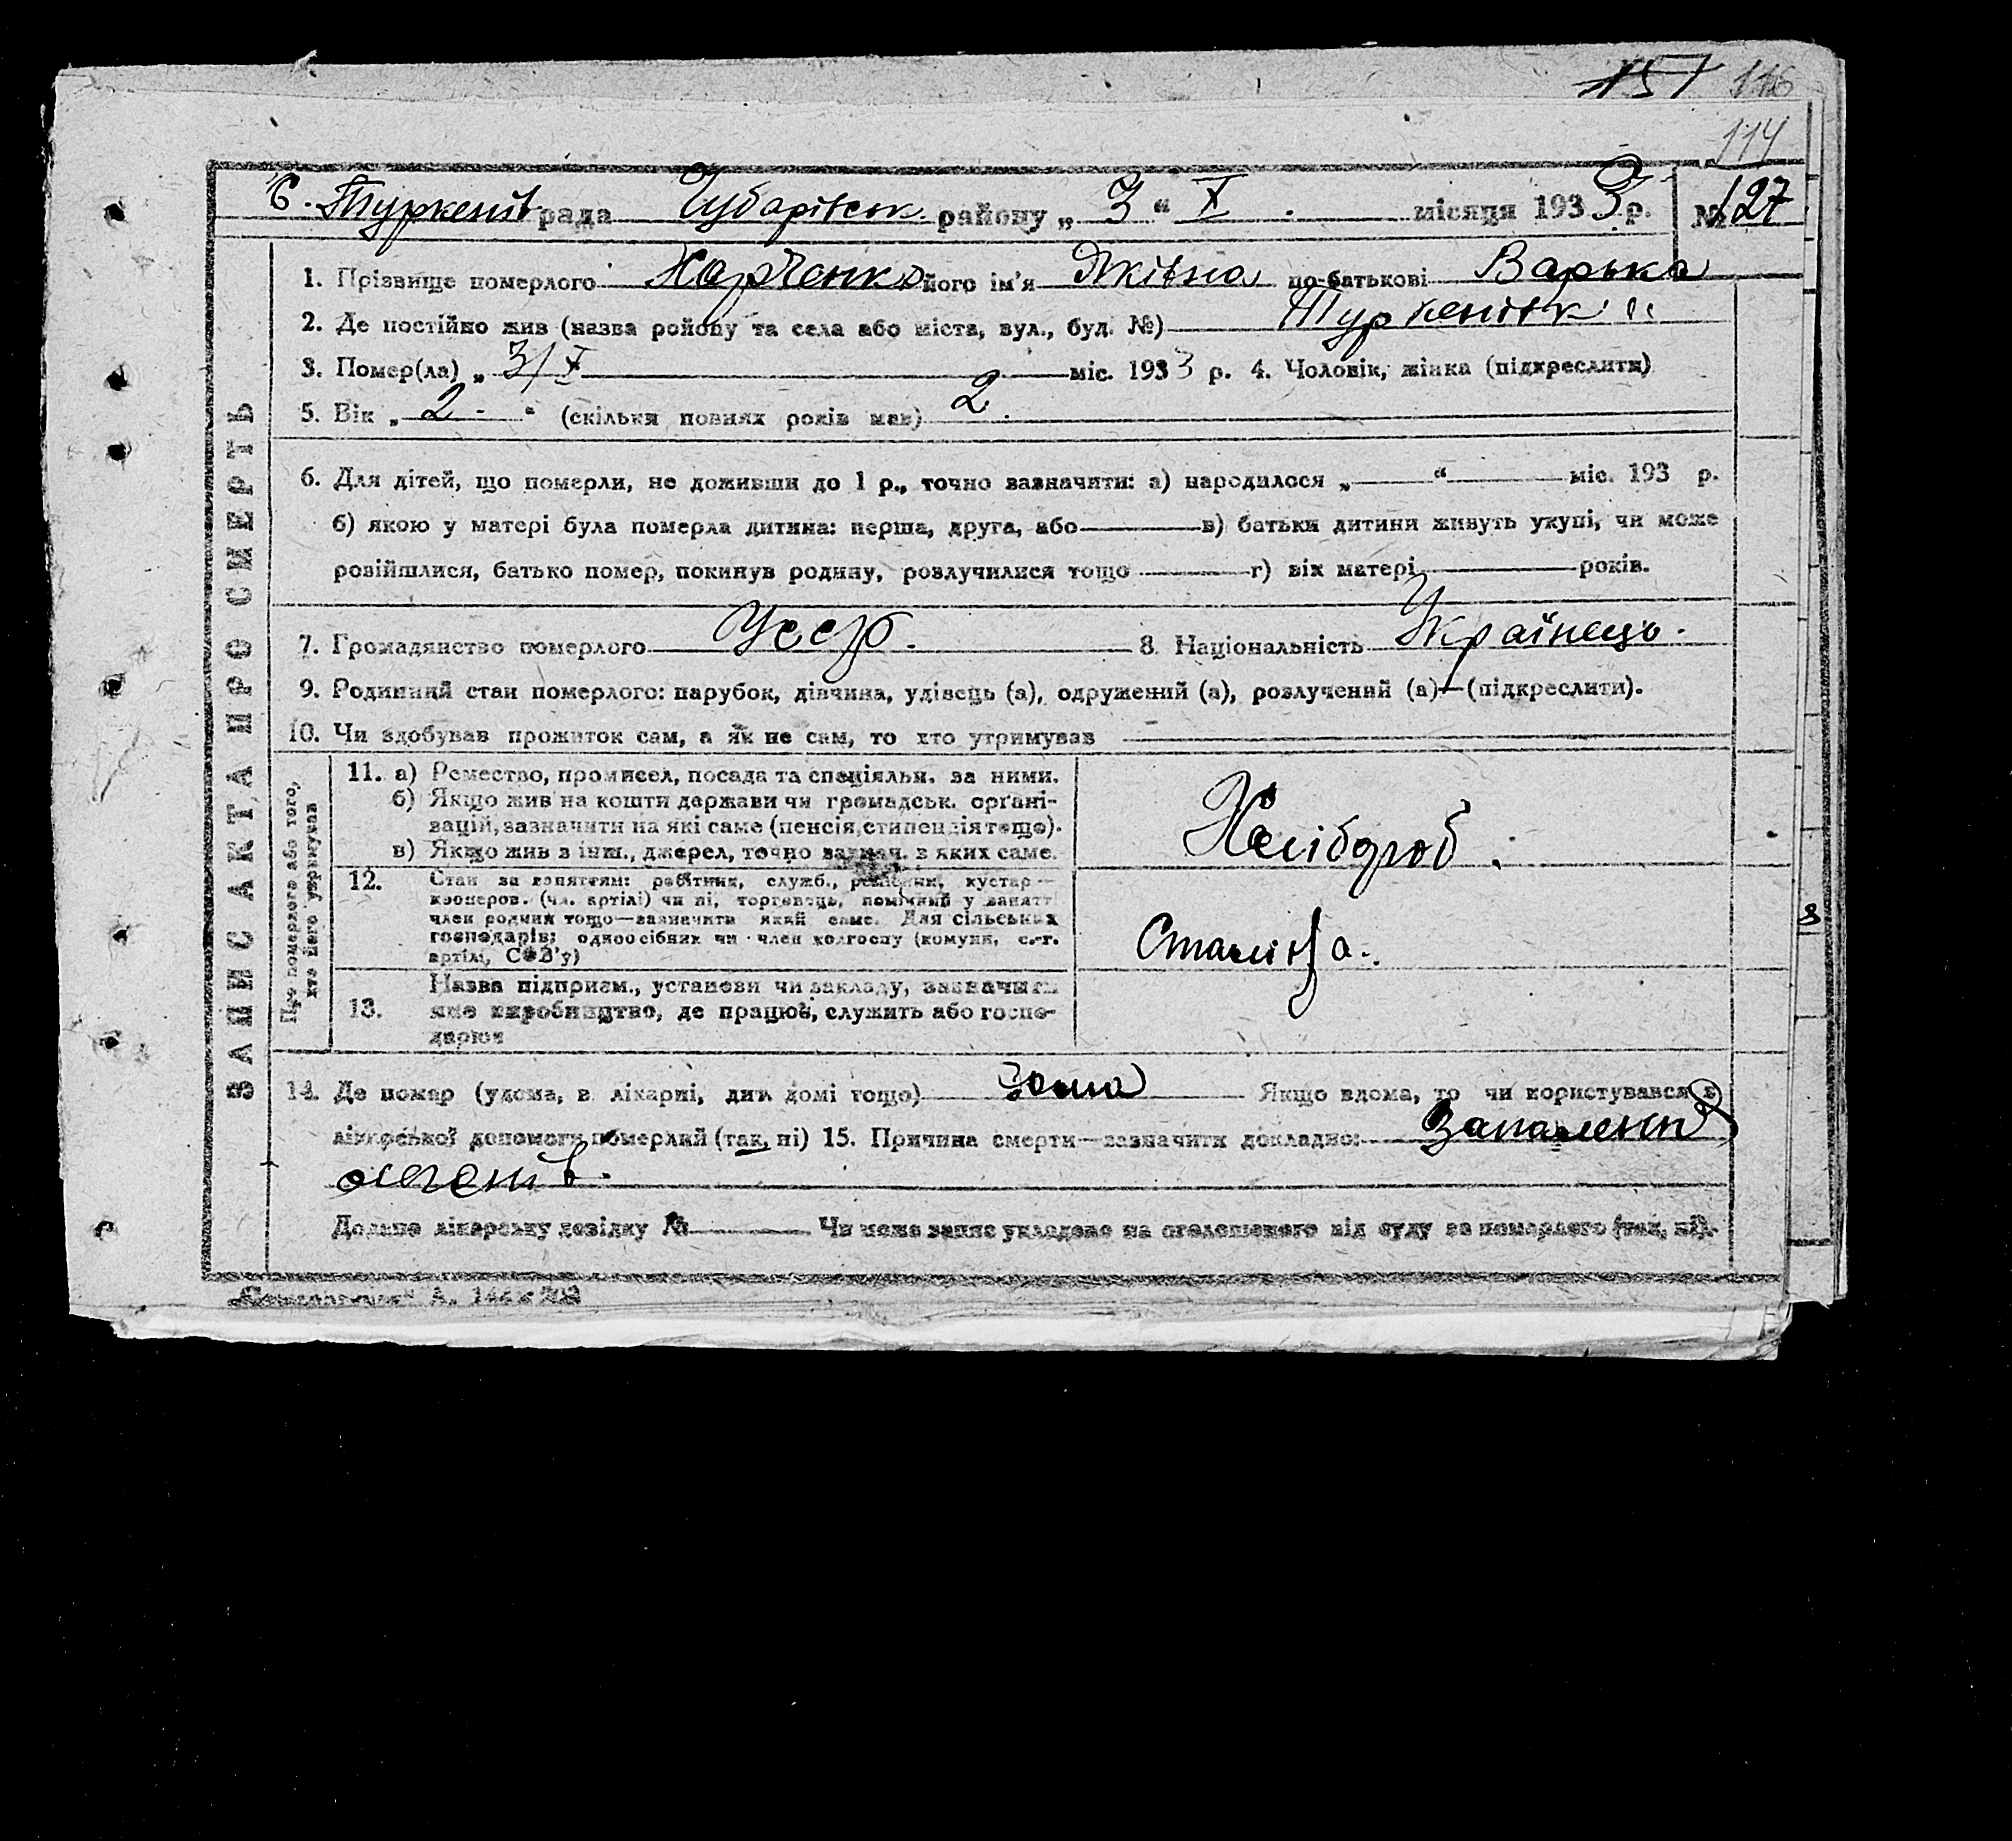 151 116
114
С. Туркенів рада Чубарівськ району „ 3 “ X місяця 1933 р. № 127
ЗАПИС АКТА ПРО СМЕРТЬ
1. Прізвище померлого Харченко його ім'я Яківна по-батькові Варька
2. Де постійно жив (назва ройону та села або міста, вул., буд. №) Туркенівк
3. Помер(ла) „ 3/X міс. 1933 р. 4. Чоловік, жінка (підкреслити)
5. Вік „ 2 “ (скільки повних років мав) 2.
6. Для дітей, що померли, не доживши до 1 р., точно зазначити: а) народилося „ “ міс. 193 р.
б) якою у матері була померла дитина: перша, друга, або в) батьки дитини живуть укупі, чи може
розійшлися, батько помер, покинув родину, розлучилися тощо г) вік матері років.
7. Громадянство померлого Усср. 8. Національність Українець.
9. Родинний стан померлого: парубок, дівчина, удівець (а), одружений (а), розлучений (а)—(підкреслити).
10. Чи здобував прожиток сам, а як не сам, то хто утримував
Про померлого або того, хто його утримував
11. а) Ремество, промисел, посада та спеціяльн. за ними.
б) Якщо жив на кошти держави чи громадськ. органі-
зацій, зазначити на які саме (пенсія, стипендія тощо).
в) Якщо жив з інш., джерел, точно зазнач. з яких саме.
Хлібороб.
12. Стан за заняттям: робітник, служб., ремісник, кустар—
кооперов. (чл. артілі) чи ні, торговець, помічний у занятті
член родини тощо—зазначити який саме. Для сільських
господарів; одноосібник чи член колгоспу (комуни, с.-г.
артілі, СОЗ'у)
Сталіна.
13. Назва підприєм., установи чи закладу, зазначити
яке виробництво, де працює, служить або госпо-
дарює
14. Де помер (удома, в лікарні, дит. домі тощо) дома Якщо вдома, то чи користувався з
лікарської допомоги померлий (так, ні) 15. Причина смерти—зазначити докладно: Запаленн
легенів.
Додано лікарську довідку № Чи може запис укладено на оголошеного від суду за померлого (так, ні).